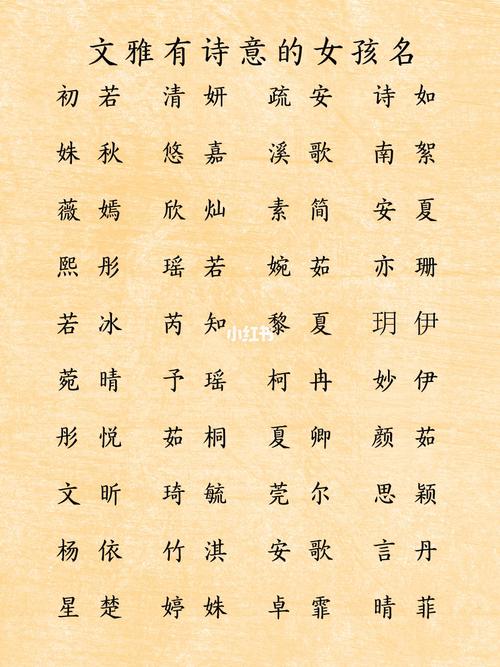 文雅有诗意的女孩名
初若 清妍 疏安 诗如
姝秋 悠嘉 溪歌 南絮
薇嫣 欣灿 素简 安夏
熙彤 瑶若 婉茹 亦珊
若冰 芮知 黎夏 玥伊
小红书
菀晴 予瑶 柯冉 妙伊
彤悦 茹桐 夏卿 颜茹
文昕 琦毓 莞尔 思颖
杨依 竹淇 安歌 言丹
星楚 婷姝 卓霏 晴菲